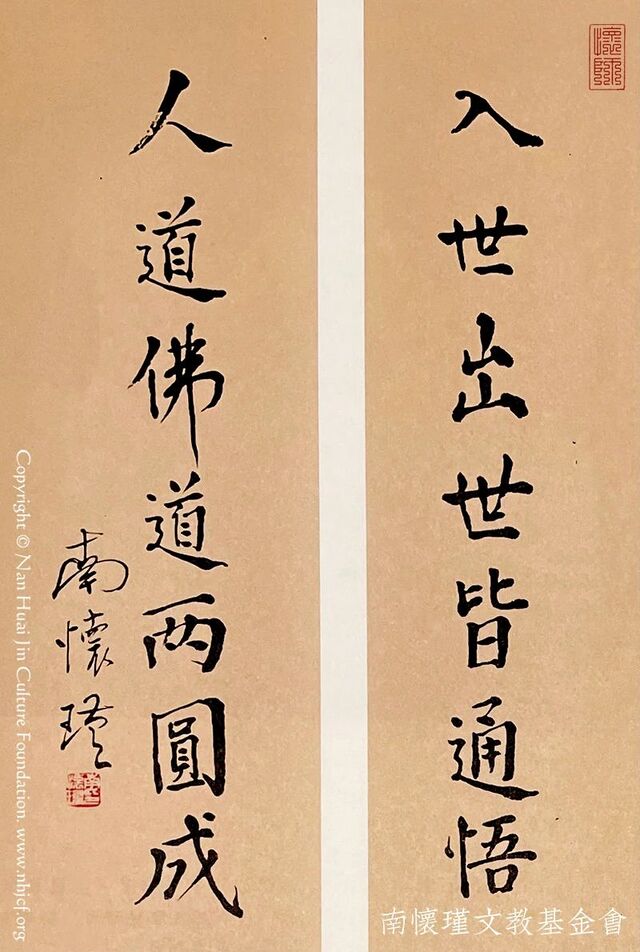 入世出世皆通悟
人道佛道两圓成
南懷瑾
南懷瑾文教基金會
Copyright © Nan Huai Jin Culture Foundation. www.nhjcf.org